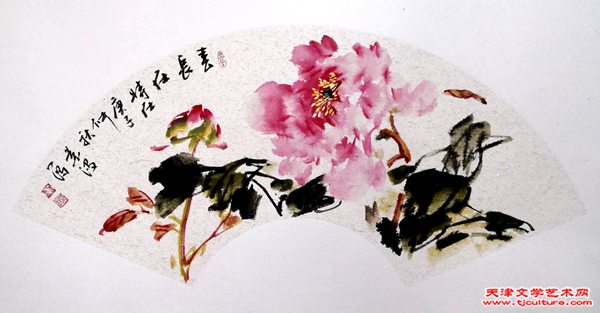 春長在
時在
庚子
仲
秋
天津文学艺术网
www.tjculture.com